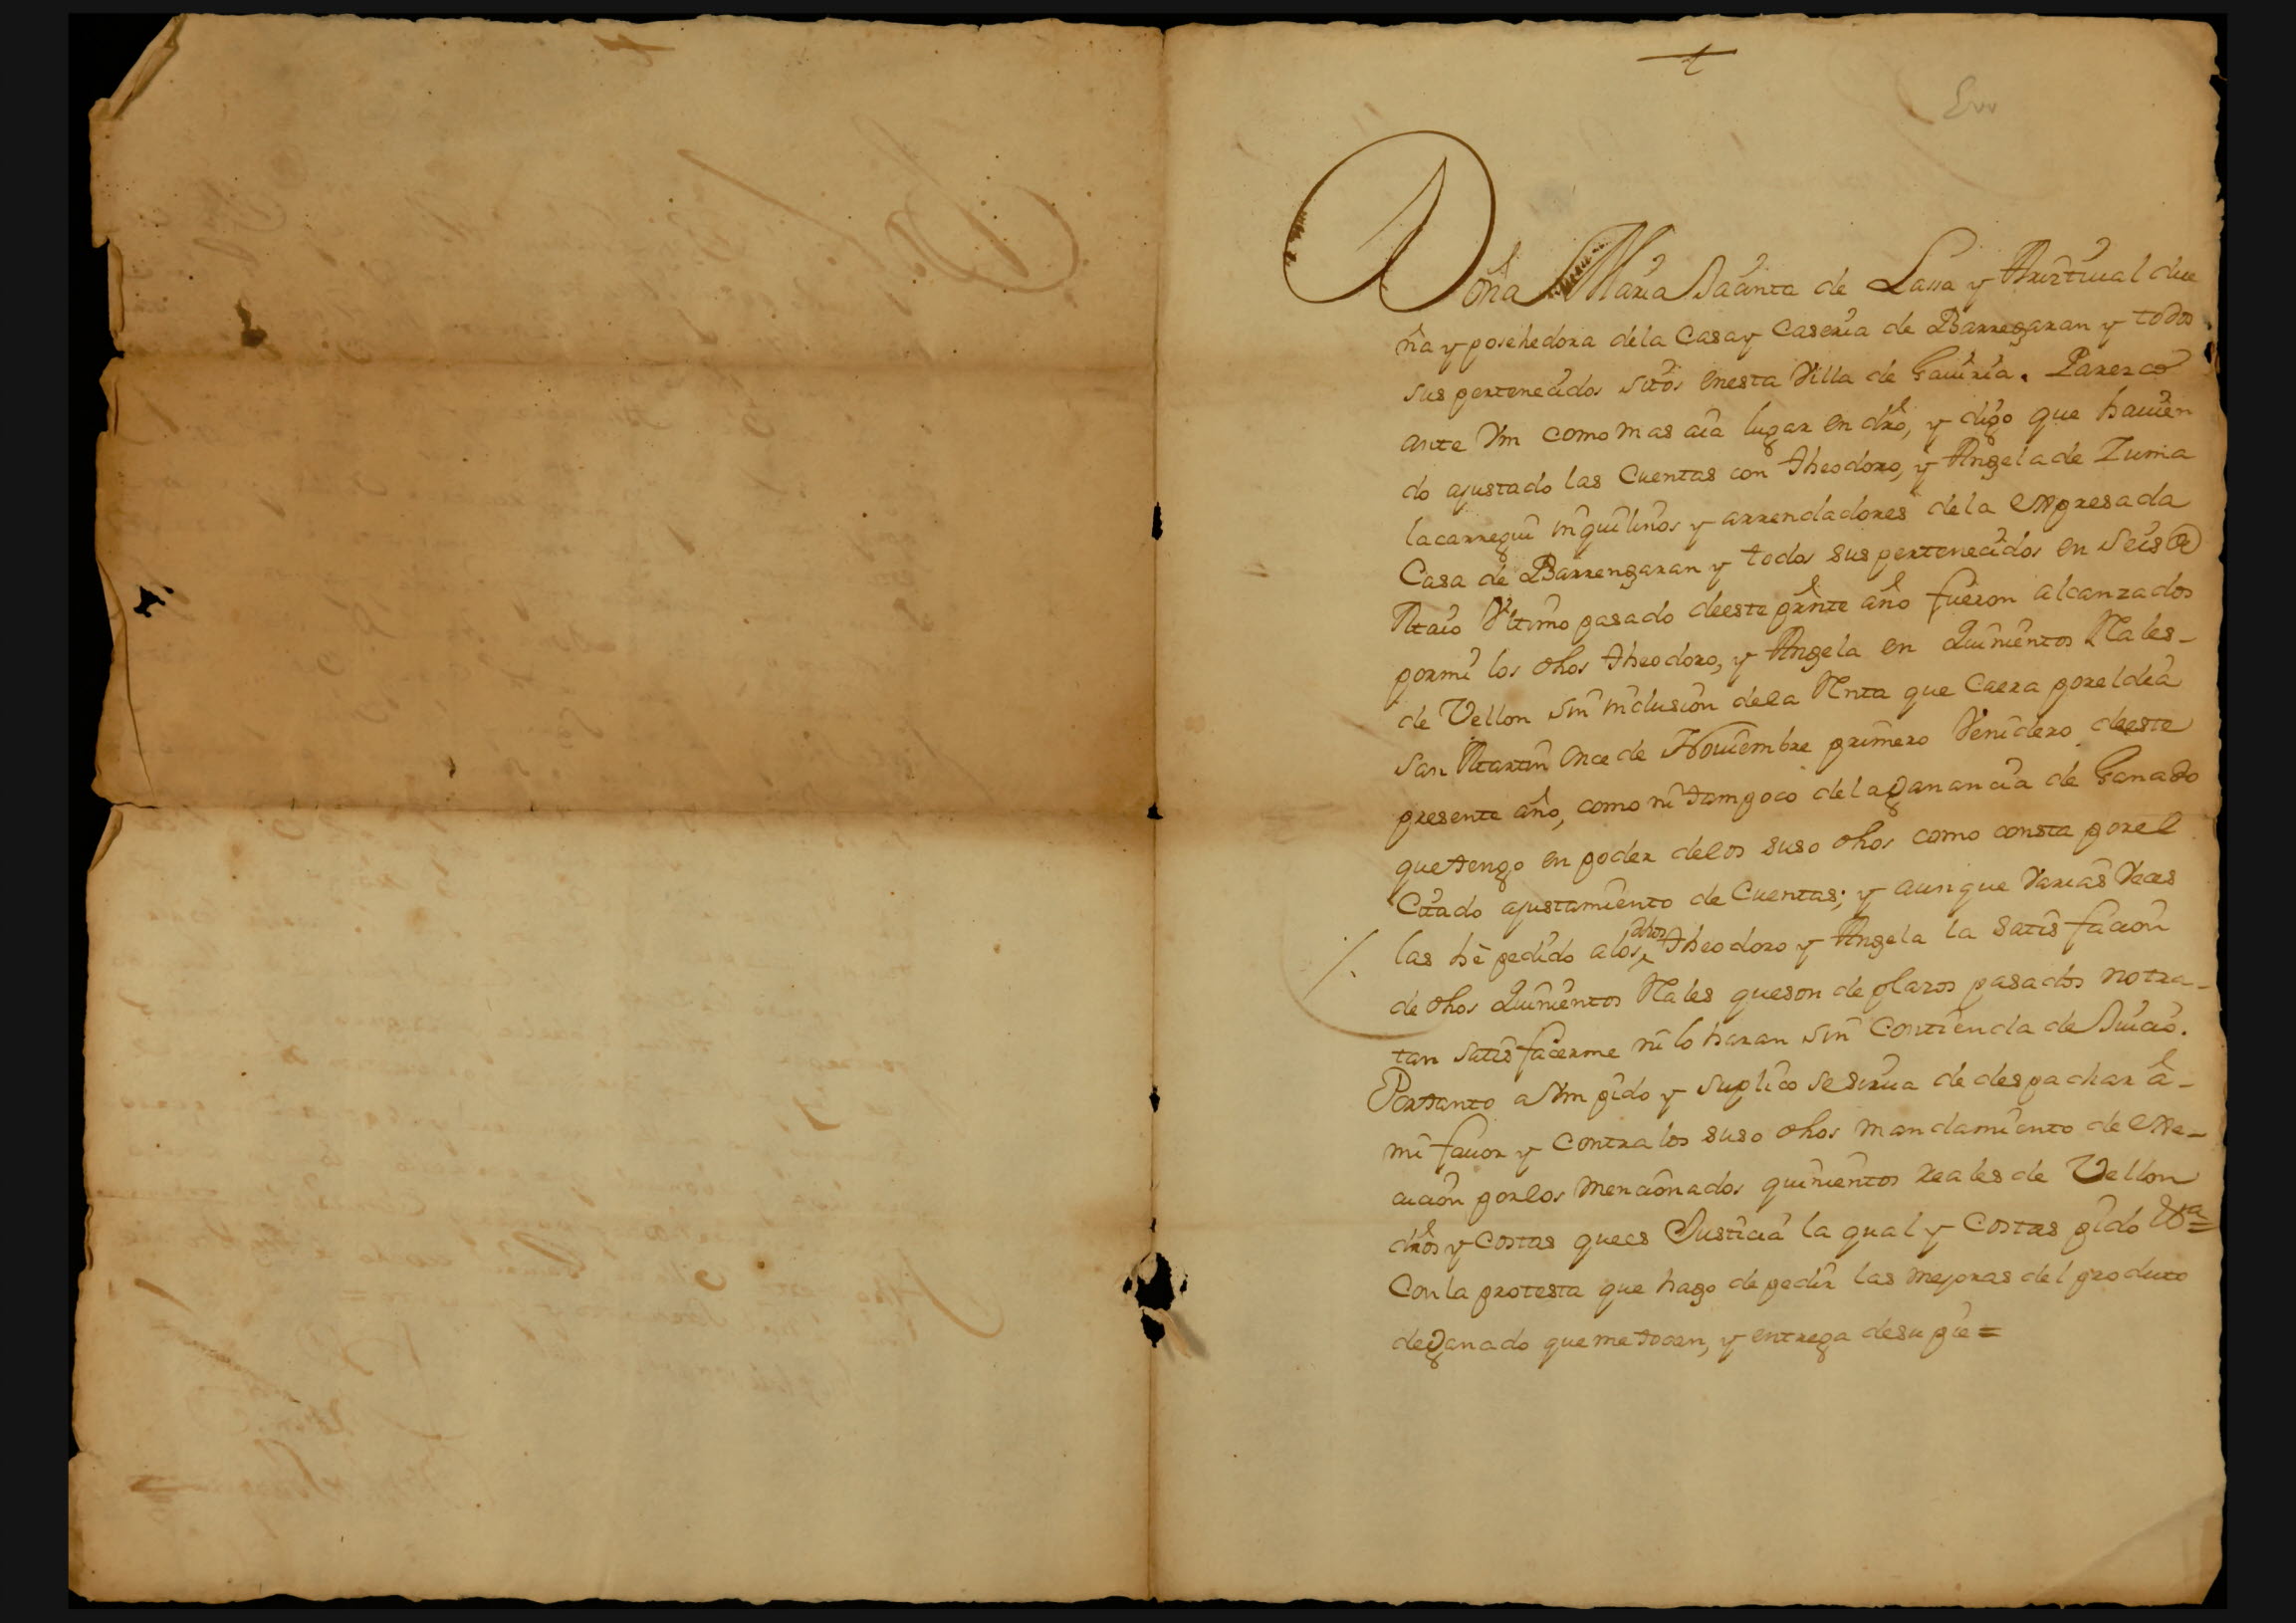 Doña Maria Jacinta de Lassa y Aristiual due
ña y posehedora dela Casa y Caseria de Barrengaran y todos
sus pertenecidos sitos en esta Villa de Gauiria. Parezco
ante Vm como mas aia lugar en dro, y digo que hauien
do ajustado las Cuentas con Theodoro, y Angela de Zuma
lacarregui inquilinos y arrendadores dela expresada
Casa de Barrengaran y todos sus pertenecidos en seis de
Maio Vltimo pasado deeste prnte año fueron alcanzados
pormi los dhos Theodoro, y Angela en Quinientos Rales
de Vellon sin inclusion dela Renta que Caera por el dia
San Martin once de Nouiembre primero Venidero deeste
presente año, como ni tampoco dela ganancia de Ganado
que tengo en poder delos suso dhos como consta porel
Citado ajustamiento de Cuentas; y aunque Varias Veces
las hè pedido alos dhos Theodoro y Angela la satisfacion
de dhos Quinientos Rales queson de plazos pasados notra-
tan satisfacerme ni lo haran sin Contienda de Juicio.
Portanto a Vm pido y suplico se sirua de despachar â-
mi fauor y Contra los suso dhos mandamiento de exe-
cucion porlos mencionados quinientos reales de Vellon
dros y Costas quees Justicia la qual y Costas pido
Con la protesta que hago de pedir las mejoras del produto
deganado que me tocan, y entrega desu pie =